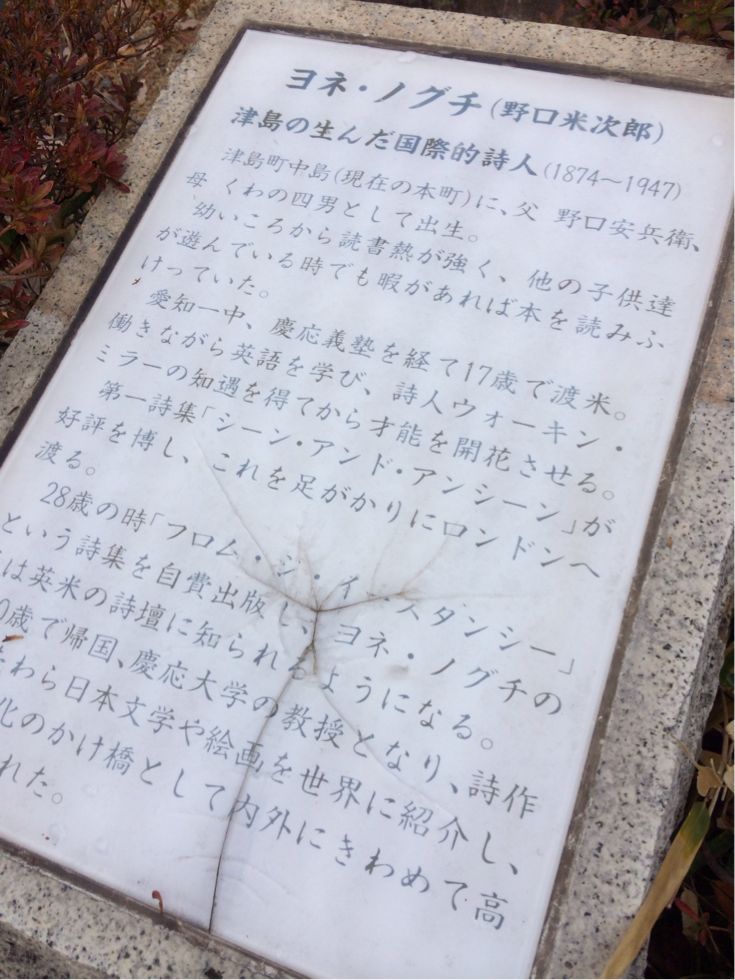 ヨネ・ノグチ(野口米次郎)
津島の生んだ国際的詩人(1874～1947)
津島町中島(現在の本町)に、父 野口安兵衛、
母 くわの四男として出生。
幼いころから読書熱が強く、他の子供達
が遊んでいる時でも暇があれば本を読みふ
けっていた。
愛知一中、慶応義塾を経て17歳で渡米。
働きながら英語を学び、詩人ウォーキン・
ミラーの知遇を得てから才能を開花させる。
第一詩集「シーン・アンド・アンシーン」が
好評を博し、これを足がかりにロンドンへ
渡る。
28歳の時「フロム・ジ・イースタンシー」
という詩集を自費出版し、ヨネ・ノグチの
は英米の詩壇に知られるようになる。
0歳で帰国、慶応大学の教授となり、詩作
かたわら日本文学や絵画を世界に紹介し、
化のかけ橋として内外にきわめて高
れた。